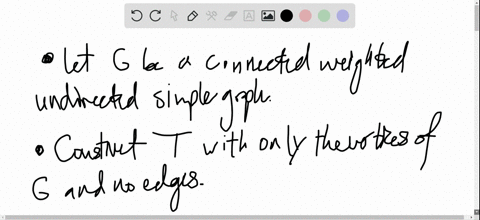 • Let G be a connected weighted
undirected simple graph.
• Construct T with only the vertices of
G and no edges.